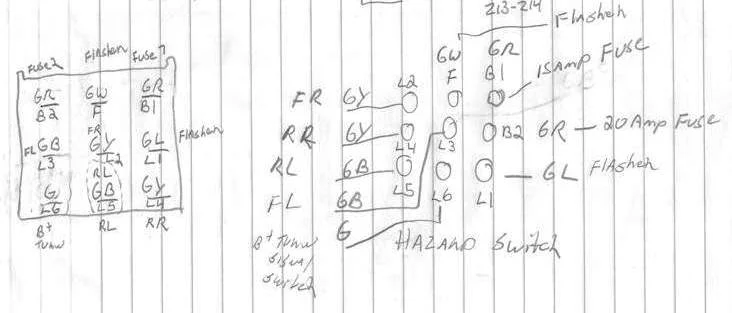 213-214
Flasher
Fuse 2 Flasher Fuse 7
GR GW GR
B2 F B1
FR
FL GB GY GL Flasher
L3 L2 L1
RL
G GB GY
L6 L5 L4
B+ RL RR
Turn
GW GR
F B1 15 Amp Fuse
FR GY L2
RR GY L4 L3 B2 GR — 20 Amp Fuse
RL GB L5 L6 L1 — GL Flasher
FL GB
B+ Turn G
Signal
Switch
Hazard Switch